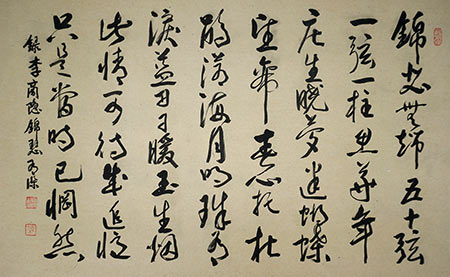 錦瑟無端五十弦
一弦一柱思華年
庄生曉夢迷蝴蝶
望帝春心托杜
鵑滄海月明珠有
淚藍田日暖玉生烟
此情可待成追憶
只是當時已惘然
錄李商隐錦瑟